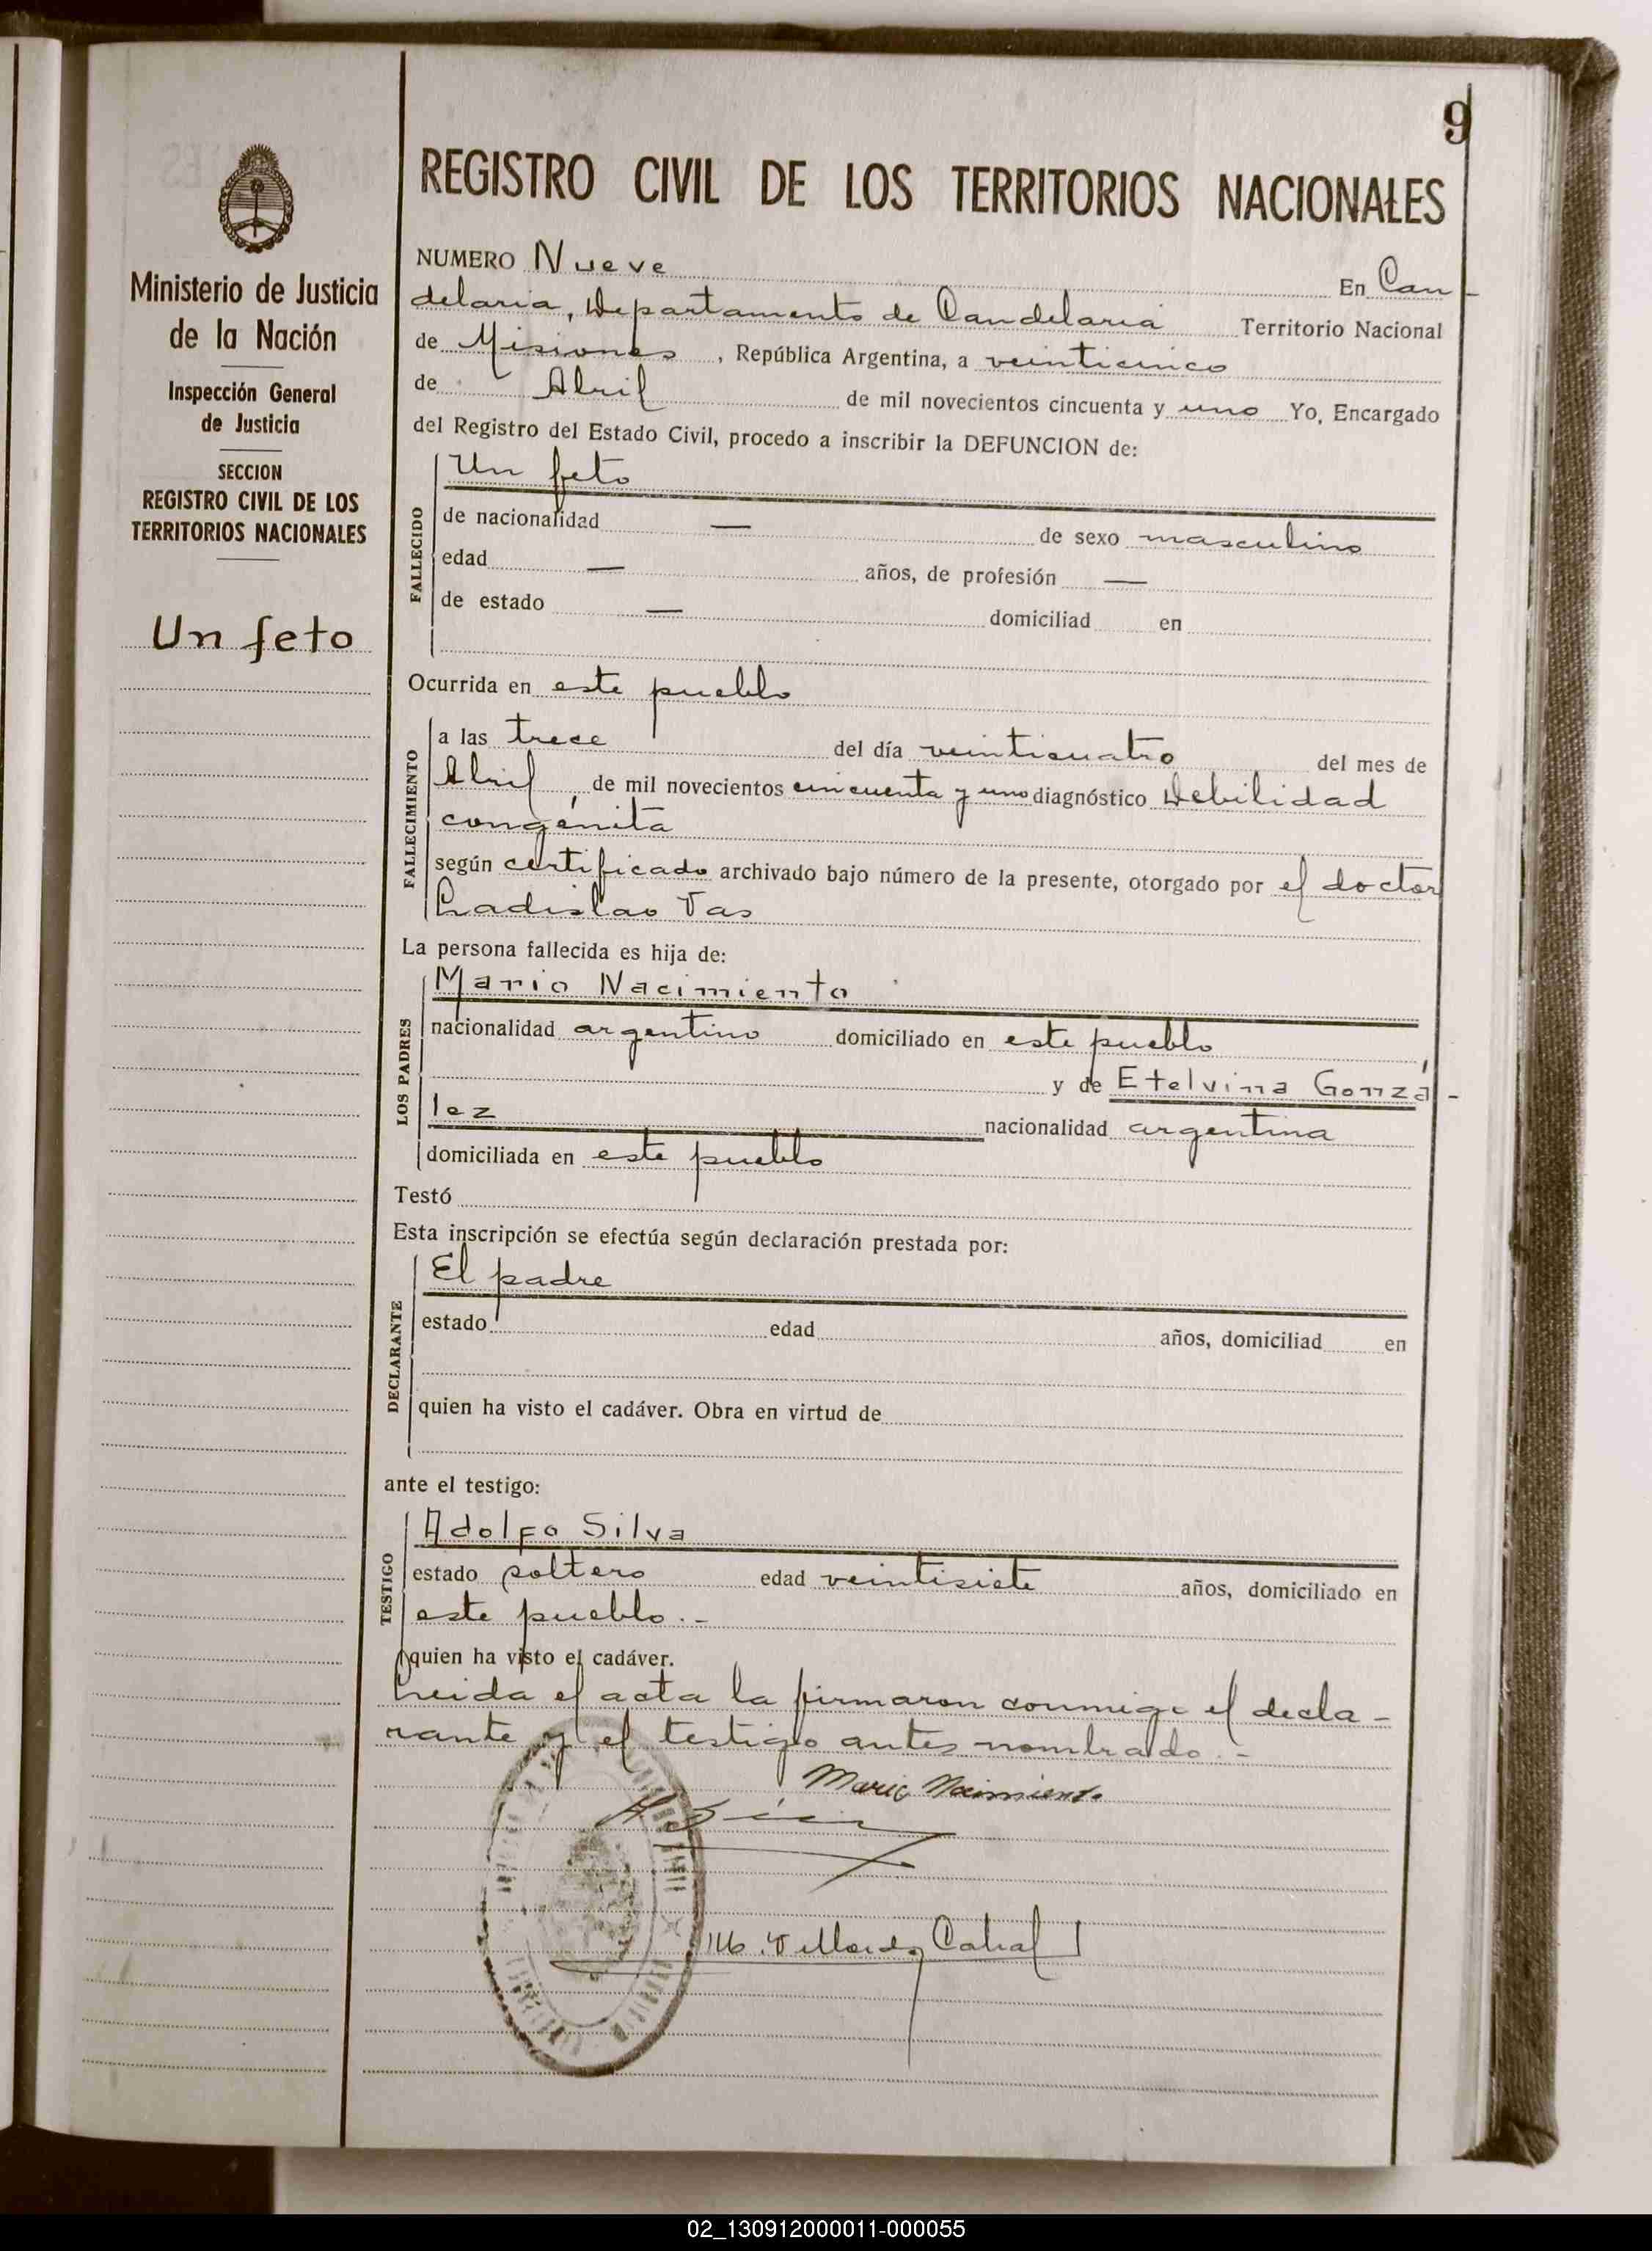 9
REGISTRO CIVIL DE LOS TERRITORIOS NACIONALES
Ministerio de Justicia
de la Nación
Inspección General
de Justicia
SECCION
REGISTRO CIVIL DE LOS
TERRITORIOS NACIONALES
Un feto
NUMERO Nueve En Can-
delaria, Departamento de Candelaria Territorio Nacional
de Misiones, República Argentina, a veinticinco
de Abril de mil novecientos cincuenta y uno Yo, Encargado
del Registro del Estado Civil, procedo a inscribir la DEFUNCION de:
FALLECIDO
Un feto
de nacionalidad — de sexo masculino
edad — años, de profesión —
de estado — domiciliad en
Ocurrida en este pueblo
FALLECIMIENTO
a las trece del día veinticuatro del mes de
Abril, de mil novecientos cincuenta y uno diagnóstico Debilidad
congénita
según certificado archivado bajo número de la presente, otorgado por el doctor
Ladislao Vas
La persona fallecida es hija de:
LOS PADRES
Mario Nacimiento
nacionalidad argentino domiciliado en este pueblo
y de Etelvina Gonzá-
lez nacionalidad argentina
domiciliada en este pueblo
Testó
Esta inscripción se efectúa según declaración prestada por:
DECLARANTE
El padre
estado edad años, domiciliad en
quien ha visto el cadáver. Obra en virtud de
ante el testigo:
TESTIGO
Adolfo Silva
estado soltero edad veintisiete años, domiciliado en
este pueblo.-
quien ha visto el cadáver.
Leida el acta la firmaron conmigo el decla-
rante y el testigo antes nombrado.-
Mario Nacimiento
Cabral
02_130912000011-000055